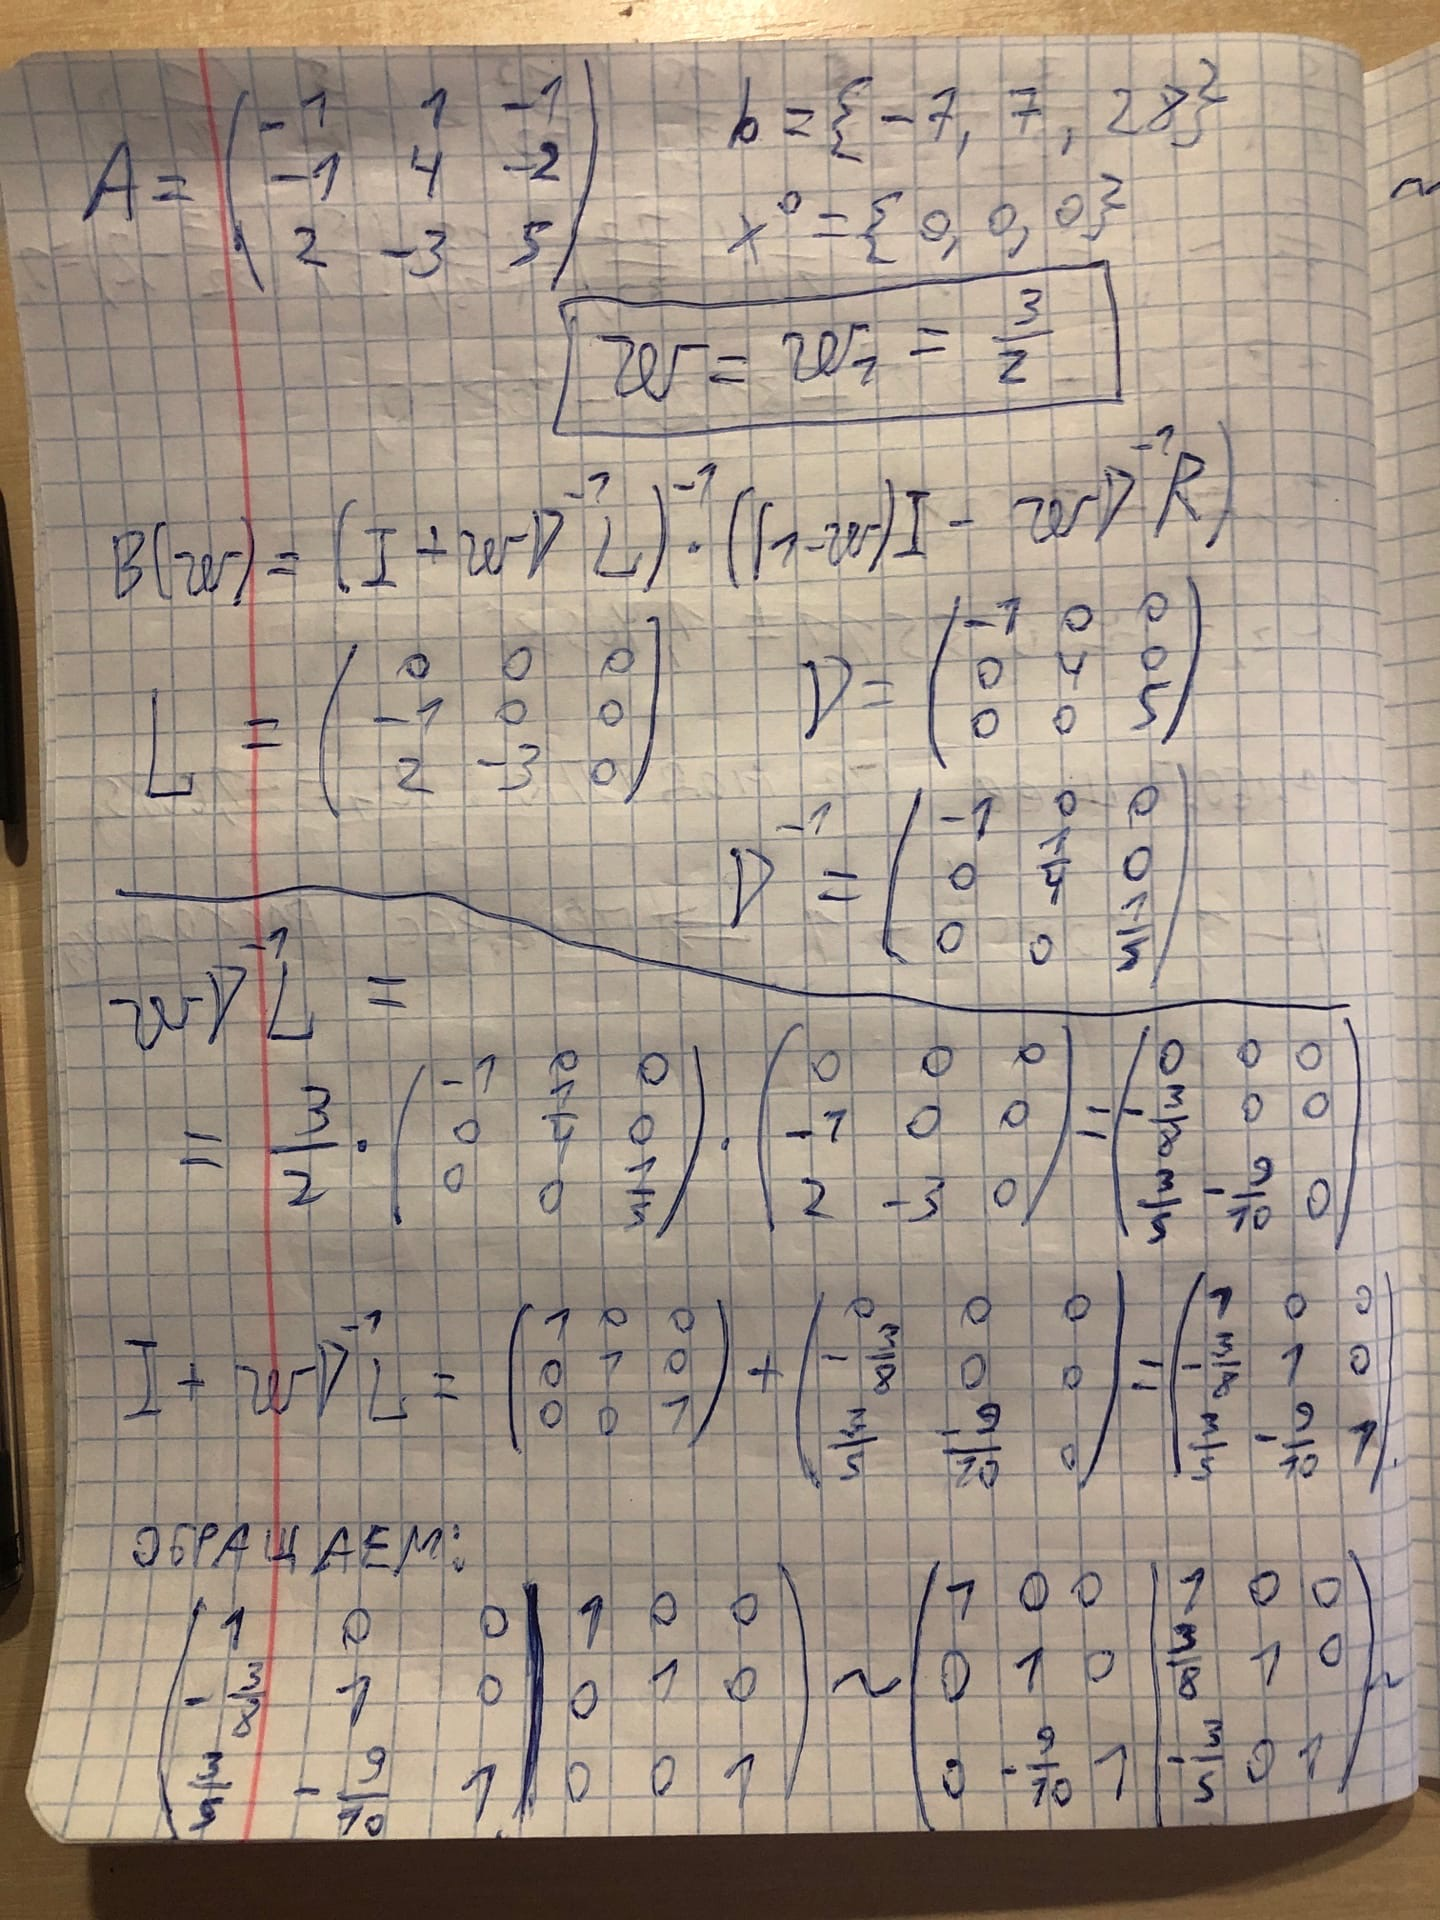 A = ( -1 1 -1
-1 4 -2
2 -3 5 )
b = {-7, 7, 28}
x⁰ = {0, 0, 0}
w = w₁ = 3/2
B(w) = (I + wD⁻¹L)⁻¹ · ((1-w)I - wD⁻¹R)
L = ( 0 0 0
-1 0 0
2 -3 0 )
D = ( -1 0 0
0 4 0
0 0 5 )
D⁻¹ = ( -1 0 0
0 1/4 0
0 0 1/5 )
wD⁻¹L =
= 3/2 · ( -1 0 0
0 1/4 0
0 0 1/5 ) · ( 0 0 0
-1 0 0
2 -3 0 ) = ( 0 0 0
-3/8 0 0
3/5 -9/10 0 )
I + wD⁻¹L = ( 1 0 0
0 1 0
0 0 1 ) + ( 0 0 0
-3/8 0 0
3/5 -9/10 0 ) = ( 1 0 0
-3/8 1 0
3/5 -9/10 1 ).
ОБРАЩАЕМ:
( 1 0 0 | 1 0 0
-3/8 1 0 | 0 1 0
3/5 -9/10 1 | 0 0 1 ) ~ ( 1 0 0 | 1 0 0
0 1 0 | 3/8 1 0
0 -9/10 1 | -3/5 0 1 ) ~